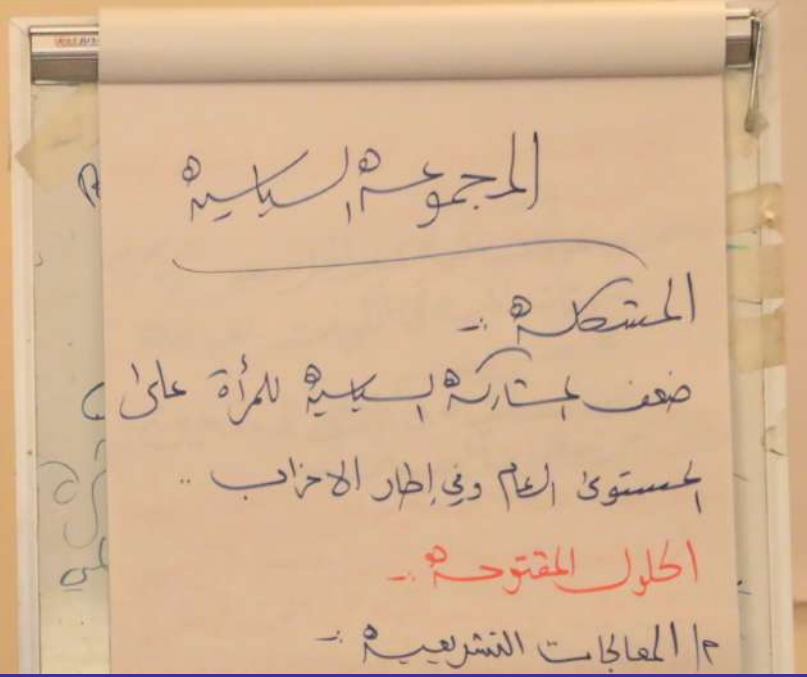 المجموعة السياسية
المشكلة :-
ضعف المشاركة السياسية للمرأة على
المستوى العام وفي إطار الاحزاب ..
الحلول المقترحة :-
م/ المعالجات التشريعية :-